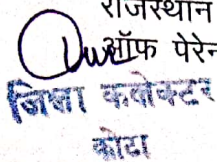 राजस्थान
ऑफ पेरेन
जिला कलेक्टर
कोटा